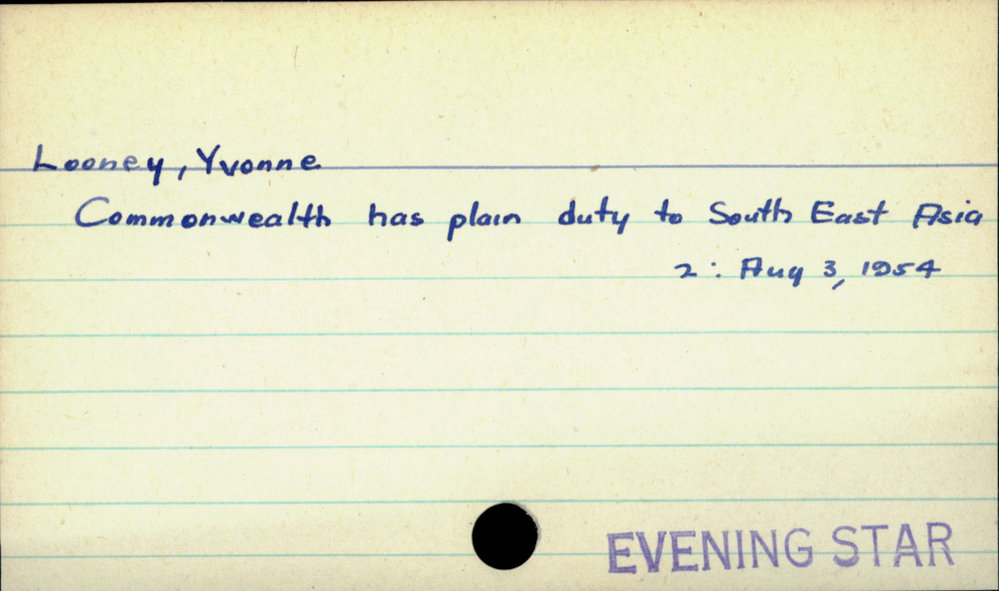 Looney, Yvonne
Commonwealth has plain duty to South East Asia
2: Aug 3, 1954
EVENING STAR